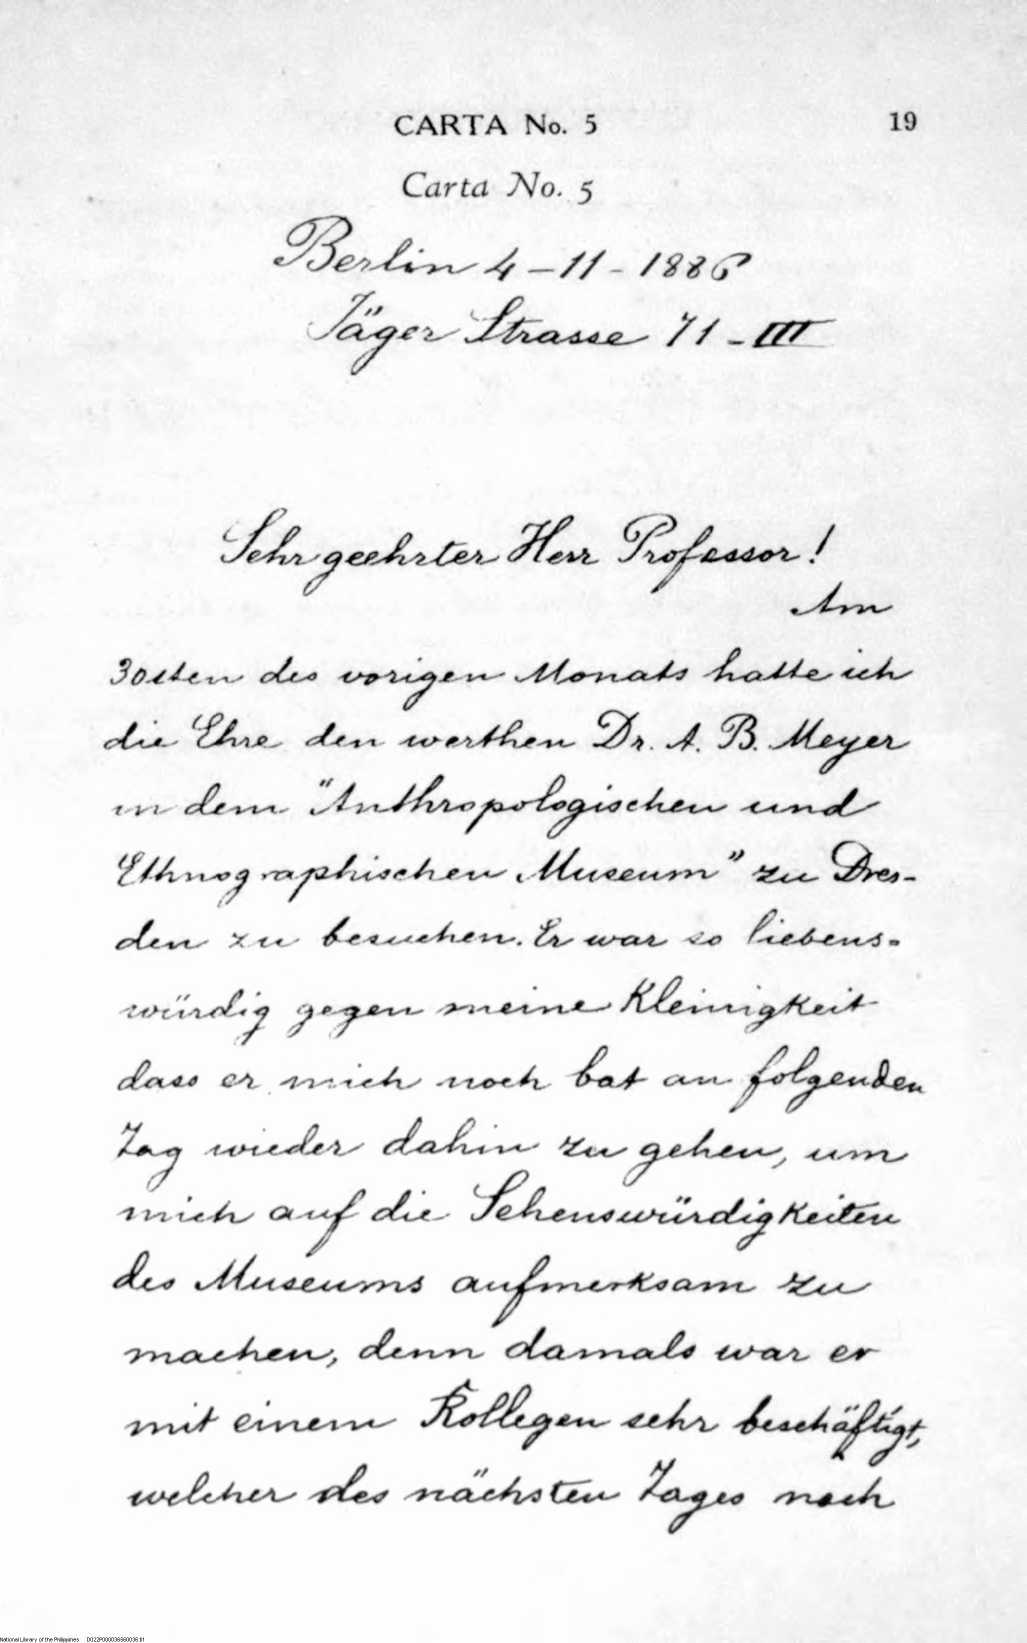 CARTA No. 5 19
Carta No. 5
Berlin 4-11-1886
Jäger Strasse 71-III
Sehr geehrter Herr Professor!
Am
30sten des vorigen Monats hatte ich
die Ehre den werthen Dr. A. B. Meyer
in dem "Anthropologischen und
Ethnographischen Museum" zu Dres-
den zu besuchen. Er war so liebens-
würdig gegen meine Kleinigkeit
dass er mich noch bat an folgenden
Tag wieder dahin zu gehen, um
mich auf die Sehenswürdigkeiten
des Museums aufmerksam zu
machen, denn damals war er
mit einem Kollegen sehr beschäftigt,
welcher des nächsten Tages nach
National Library of the Philippines D022P000036560036.tif